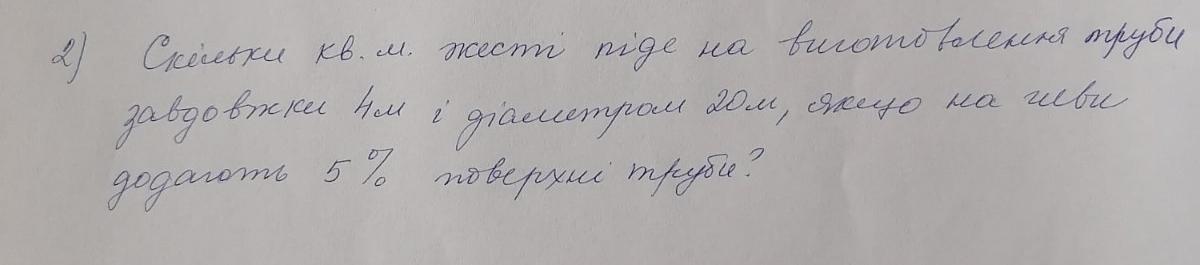 2) Скільки кв. м. жесті піде на виготовлення труби
завдовжки 4м і діаметром 20м, якщо на шви
додають 5% поверхні труби?